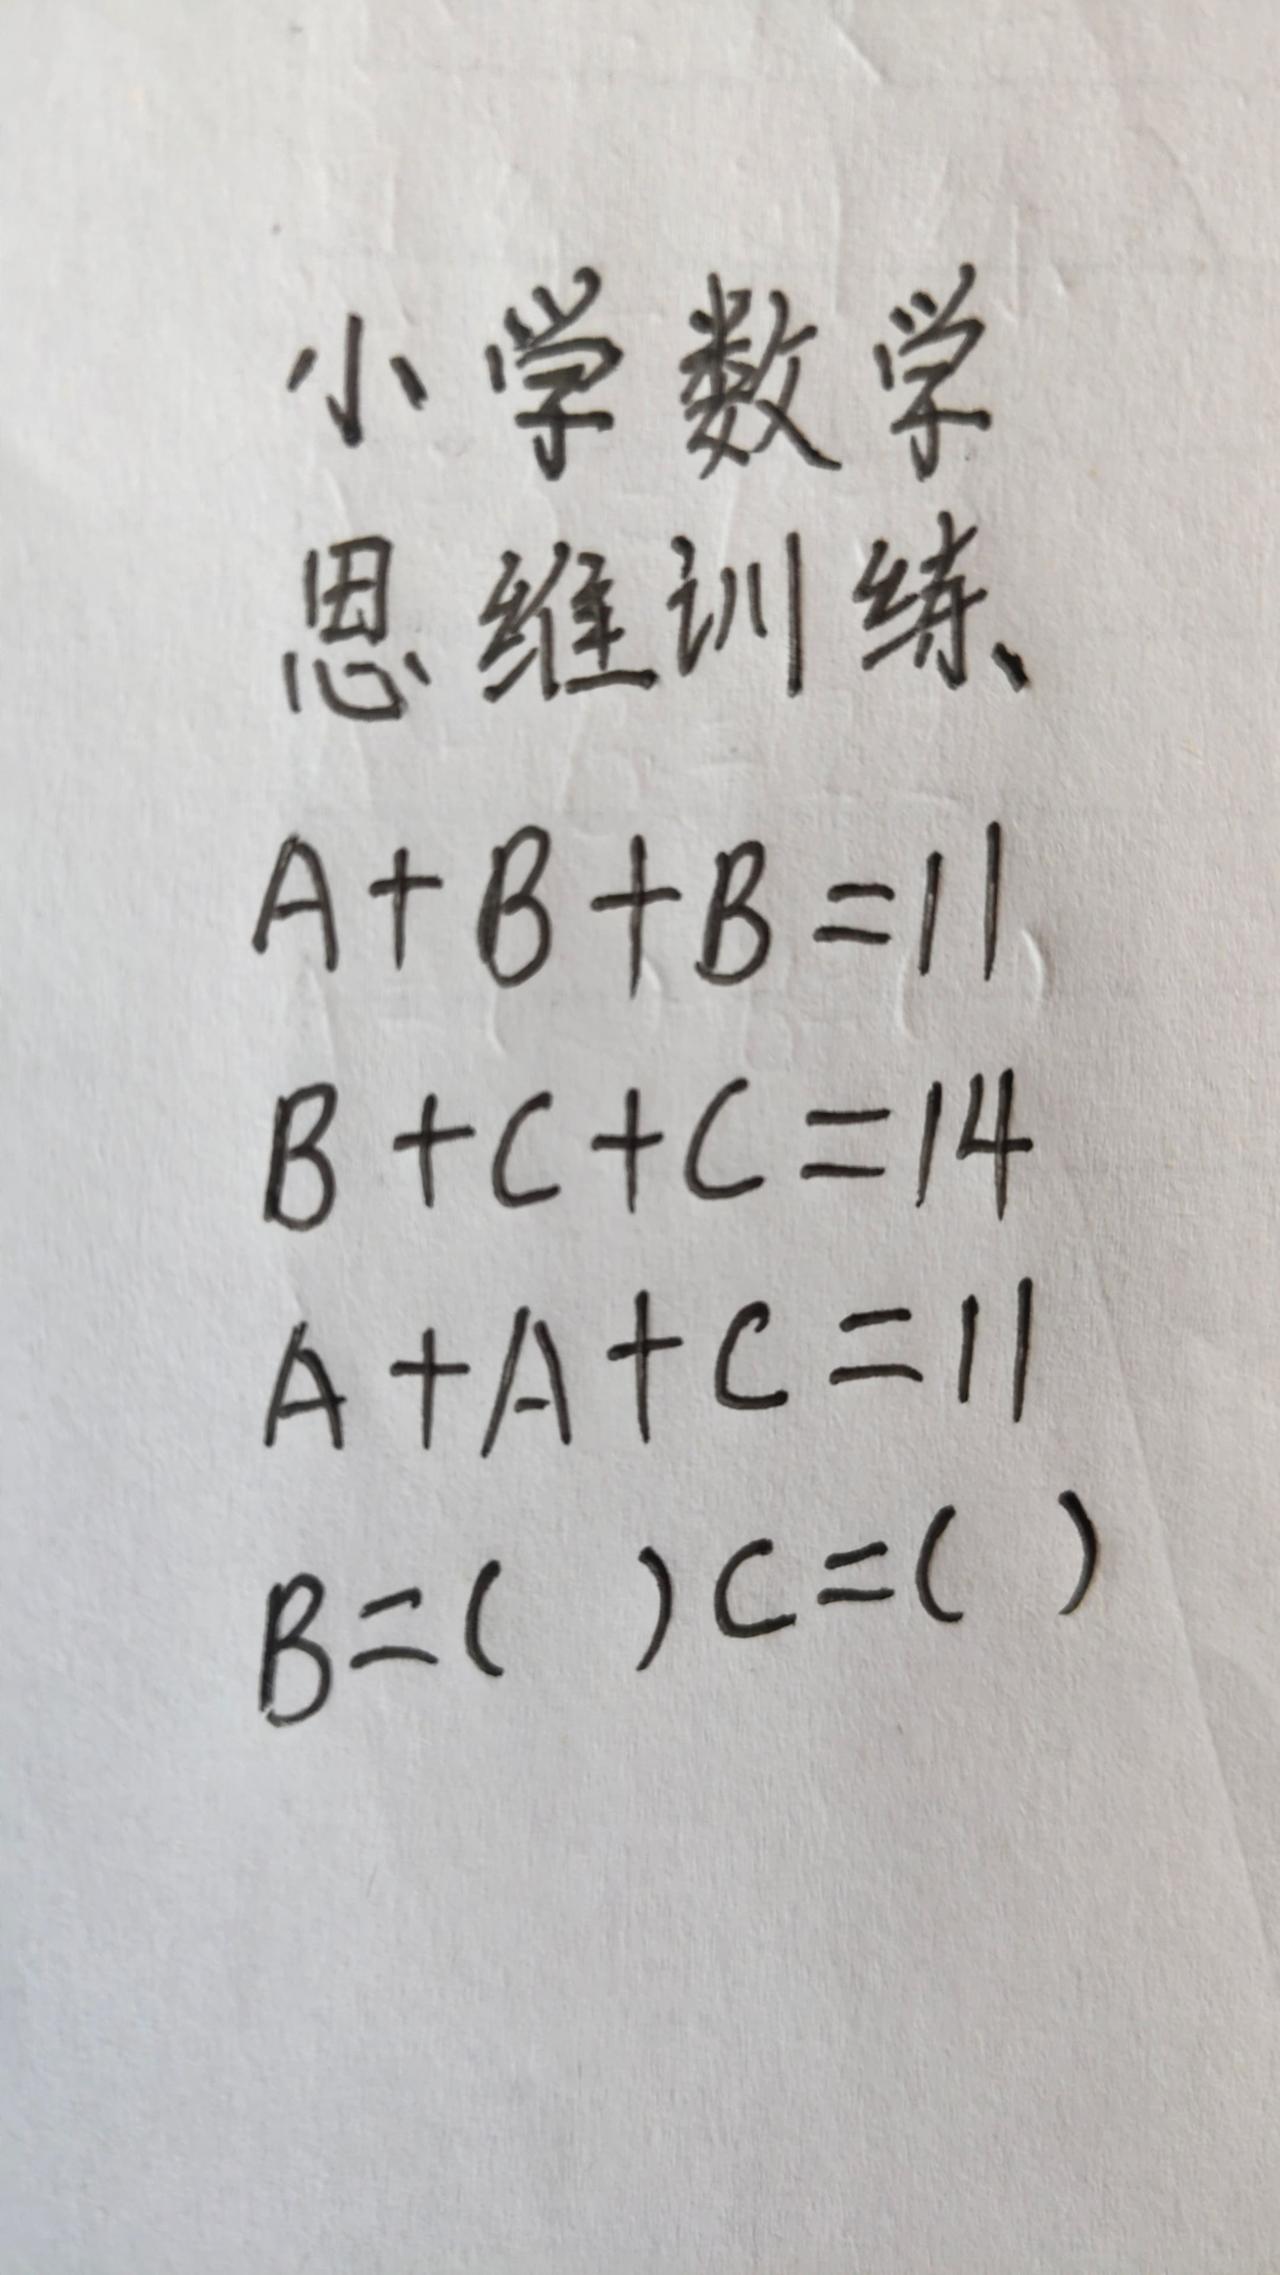 小学数学
思维训练
A+B+B=11
B+C+C=14
A+A+C=11
B=( ) C=( )